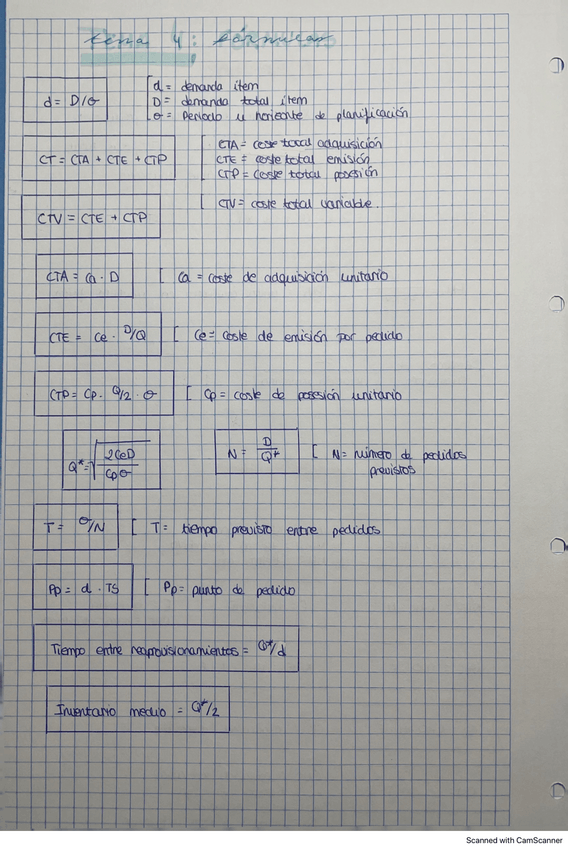 tema 4: fórmulas
d = D/θ
d = demanda ítem
D = demanda total ítem
θ = Periodo u horizonte de planificación
CT = CTA + CTE + CTP
CTA = coste total adquisición
CTE = coste total emisión
CTP = Coste total posesión
CTV = CTE + CTP
CTV = coste total variable.
CTA = Ca · D
Ca = coste de adquisición unitario
CTE = Ce · D/Q
Ce = coste de emisión por pedido
CTP = Cp · Q/2 · θ
Cp = coste de posesión unitario
Q* = √(2CeD / Cpθ)
N = D / Q*
N = número de pedidos
previstos
T = θ/N
T = tiempo previsto entre pedidos
Pp = d · TS
Pp = punto de pedido
Tiempo entre reaprovisionamientos = Q*/d
Inventario medio = Q*/2
Scanned with CamScanner